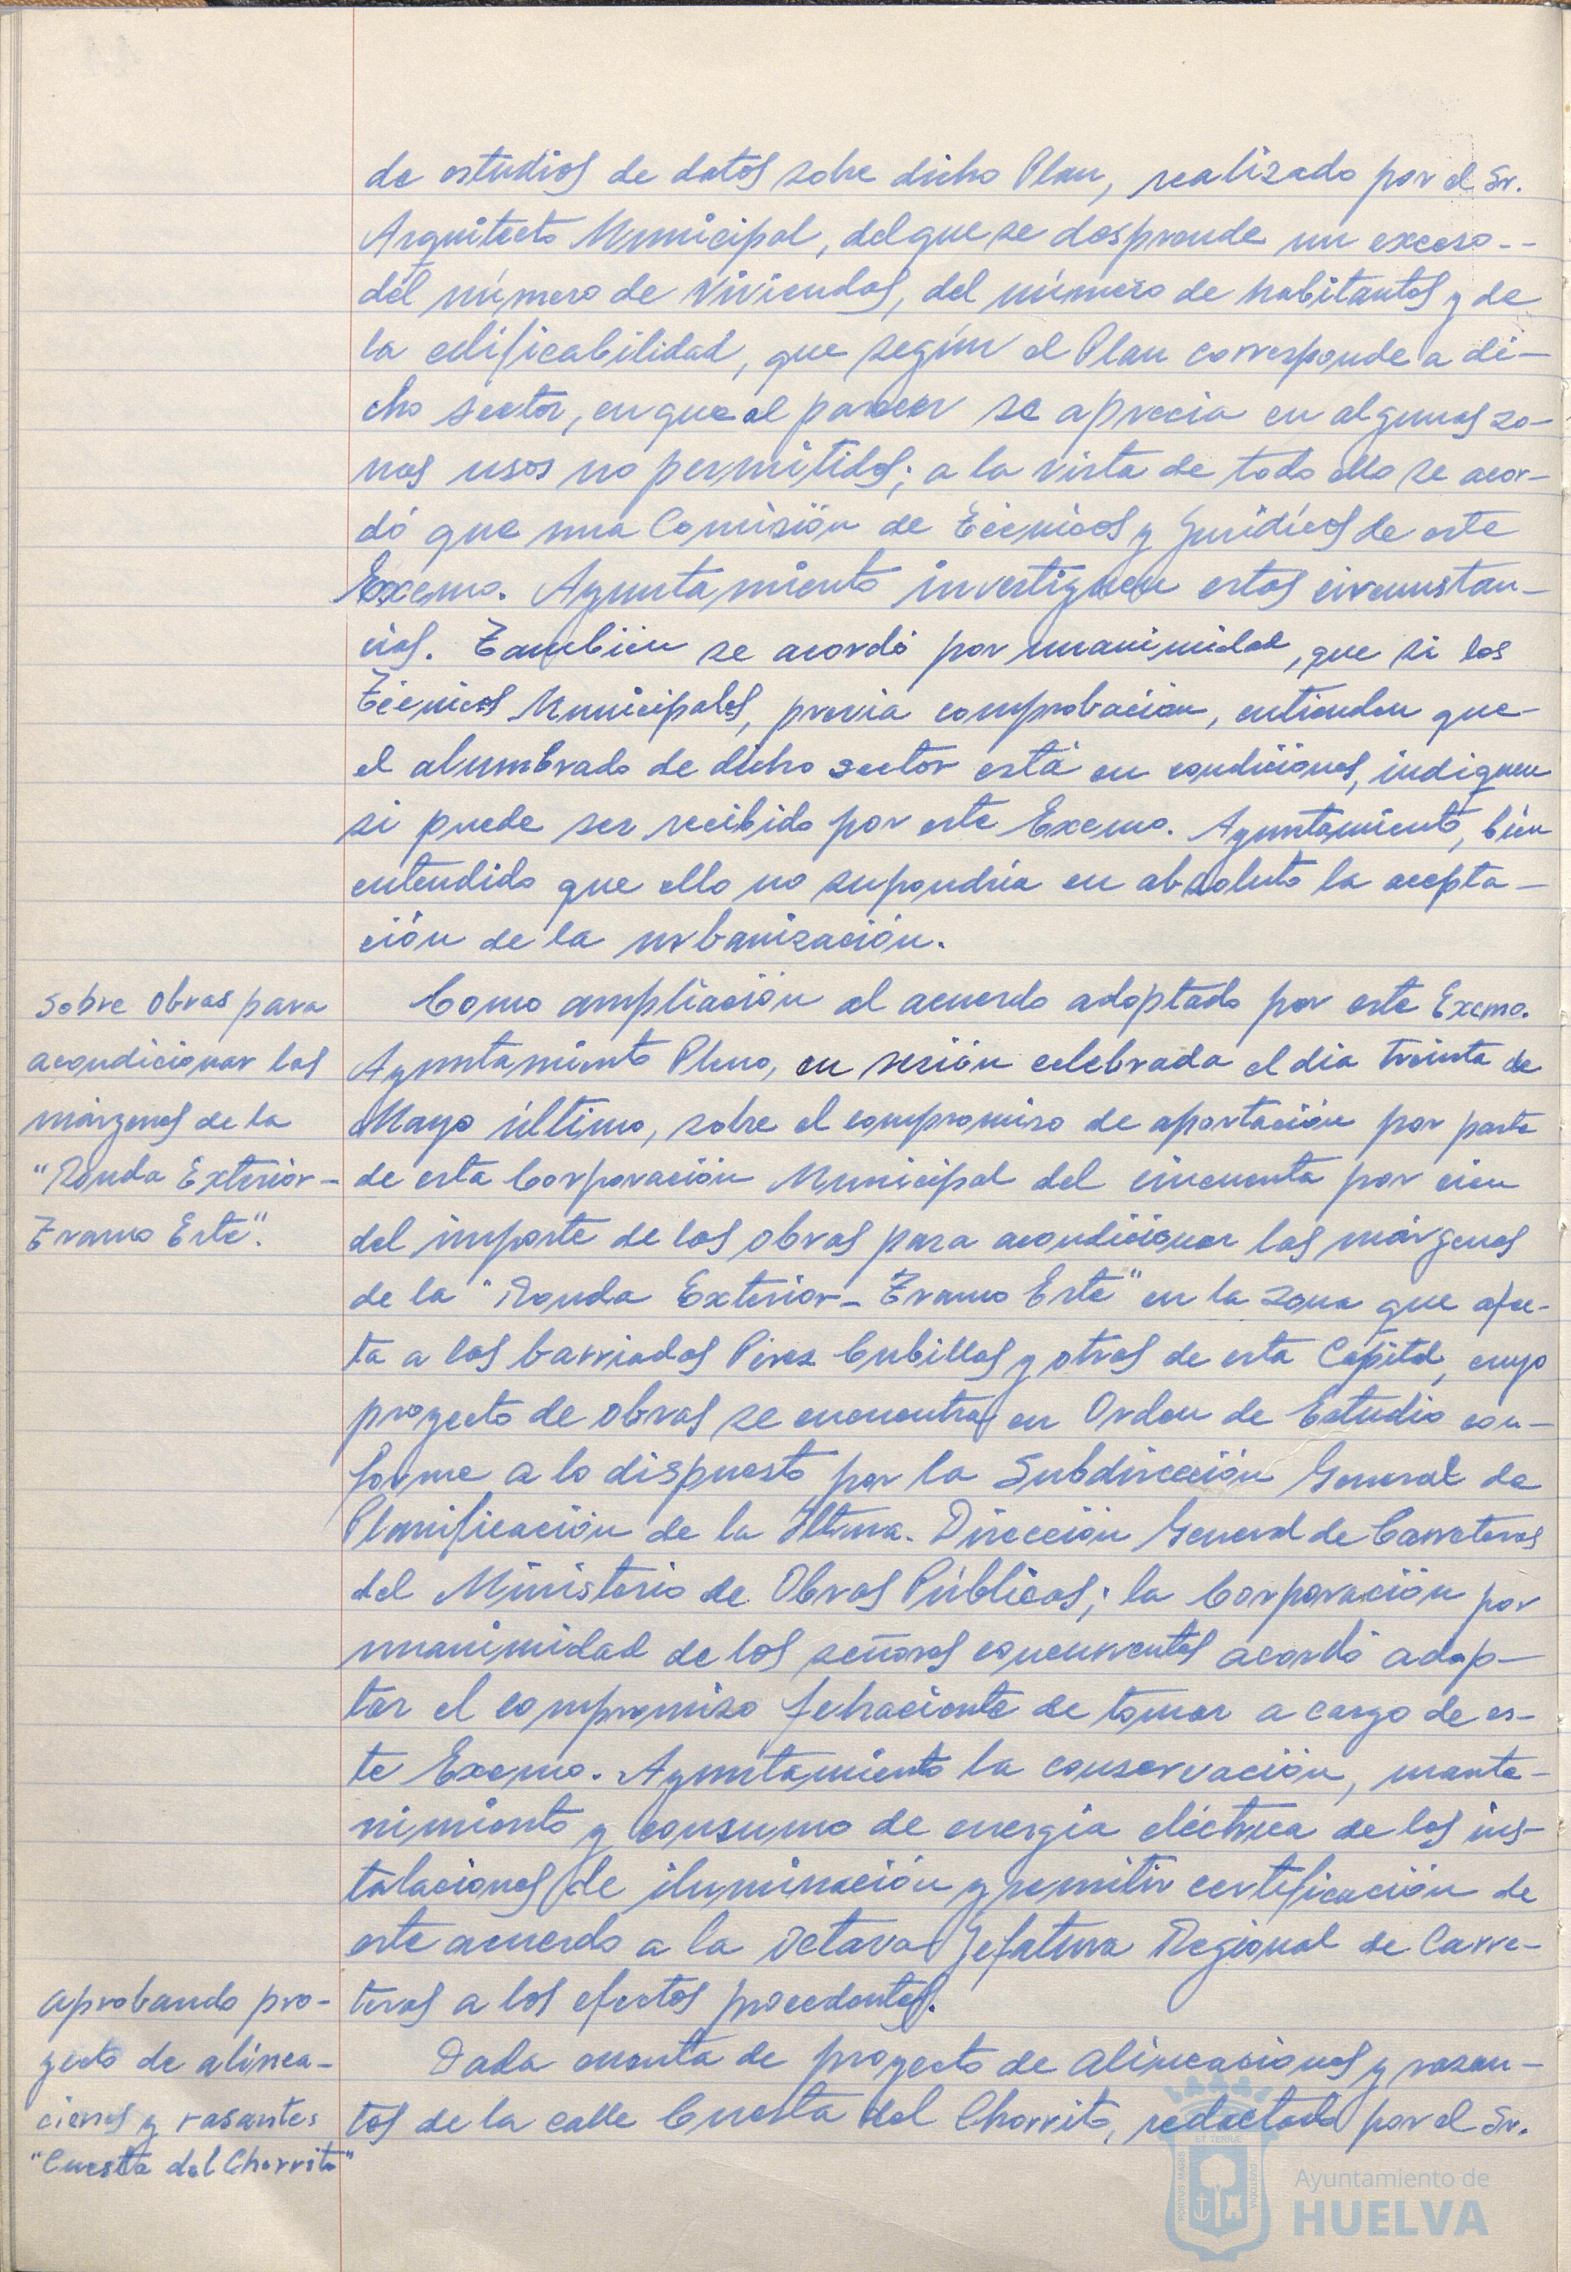 de estudios de datos sobre dicho Plan, realizado por el Sr.
Arquitecto Municipal, del que se desprende un exceso--
del número de viviendas, del número de habitantes y de
la edificabilidad, que según el Plan corresponde a di-
cho sector, en que al parecer se aprecia en algunas zo-
nas usos no permitidos; a la vista de todo ello se acor-
dó que una Comisión de Técnicos y Jurídicos de este
Excmo. Ayuntamiento investiguen estas circunstan-
cias. También se acordó por unanimidad, que si los
Técnicos Municipales, previa comprobación, entienden que-
el alumbrado de dicho sector está en condiciones, indiquen
si puede ser recibido por este Excmo. Ayuntamiento, bien
entendido que ello no supondría en absoluto la acepta-
ción de la urbanización.
Sobre Obras para
acondicionar las
márgenes de la
"Ronda Exterior-
Tramo Este".
Como ampliación al acuerdo adoptado por este Excmo.
Ayuntamiento Pleno, en sesión celebrada el día treinta de
Mayo último, sobre el compromiso de aportación por parte
de esta Corporación Municipal del cincuenta por cien
del importe de las obras para acondicionar las márgenes
de la "Ronda Exterior-Tramo Este" en la zona que afec-
ta a las barriadas Pérez Cubillas y otras de esta Capital, cuyo
proyecto de obras se encuentra en Orden de Estudio con-
forme a lo dispuesto por la Subdirección General de
Planificación de la Iltma. Dirección General de Carreteras
del Ministerio de Obras Públicas; la Corporación por
unanimidad de los señores concurrentes acordó adop-
tar el compromiso fehaciente de tomar a cargo de es-
te Excmo. Ayuntamiento la conservación, mante-
nimiento y consumo de energía eléctrica de las ins-
talaciones de iluminación y remitir certificación de
este acuerdo a la Octava Jefatura Regional de Carre-
teras a los efectos procedentes.
Aprobando pro-
yecto de alinea-
ciones y rasantes
"Cuesta del Chorrito"
Dada cuenta de proyecto de alineaciones y rasan-
tes de la calle Cuesta del Chorrito, redactado por el Sr.
PORTUS MARIS
ET TERRAE
CUSTODIA
Ayuntamiento de
HUELVA